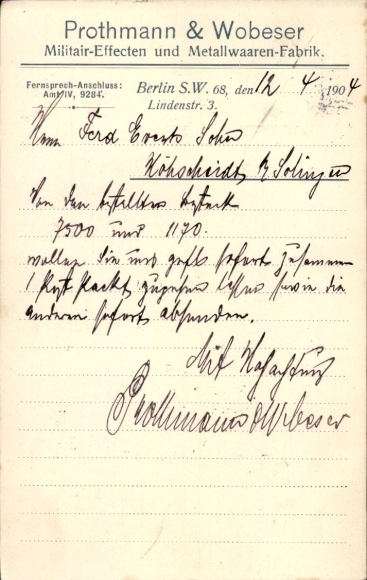 Prothmann & Wobeser
Militair-Effecten und Metallwaaren-Fabrik.
Fernsprech-Anschluss:
Amt IV, 9284.
Berlin S.W. 68, den 12 4 1904
Lindenstr. 3.
Herrn Ferd Everts Sohn
Höhscheidt b Solingen
Von den bestellten
7500 und 1170.
wollen Sie uns gefl. sofort zusammen
1 Post Packt zugehen lassen sowie die
anderen sofort absenden.
Mit Hochachtung
Prothmann & Wobeser